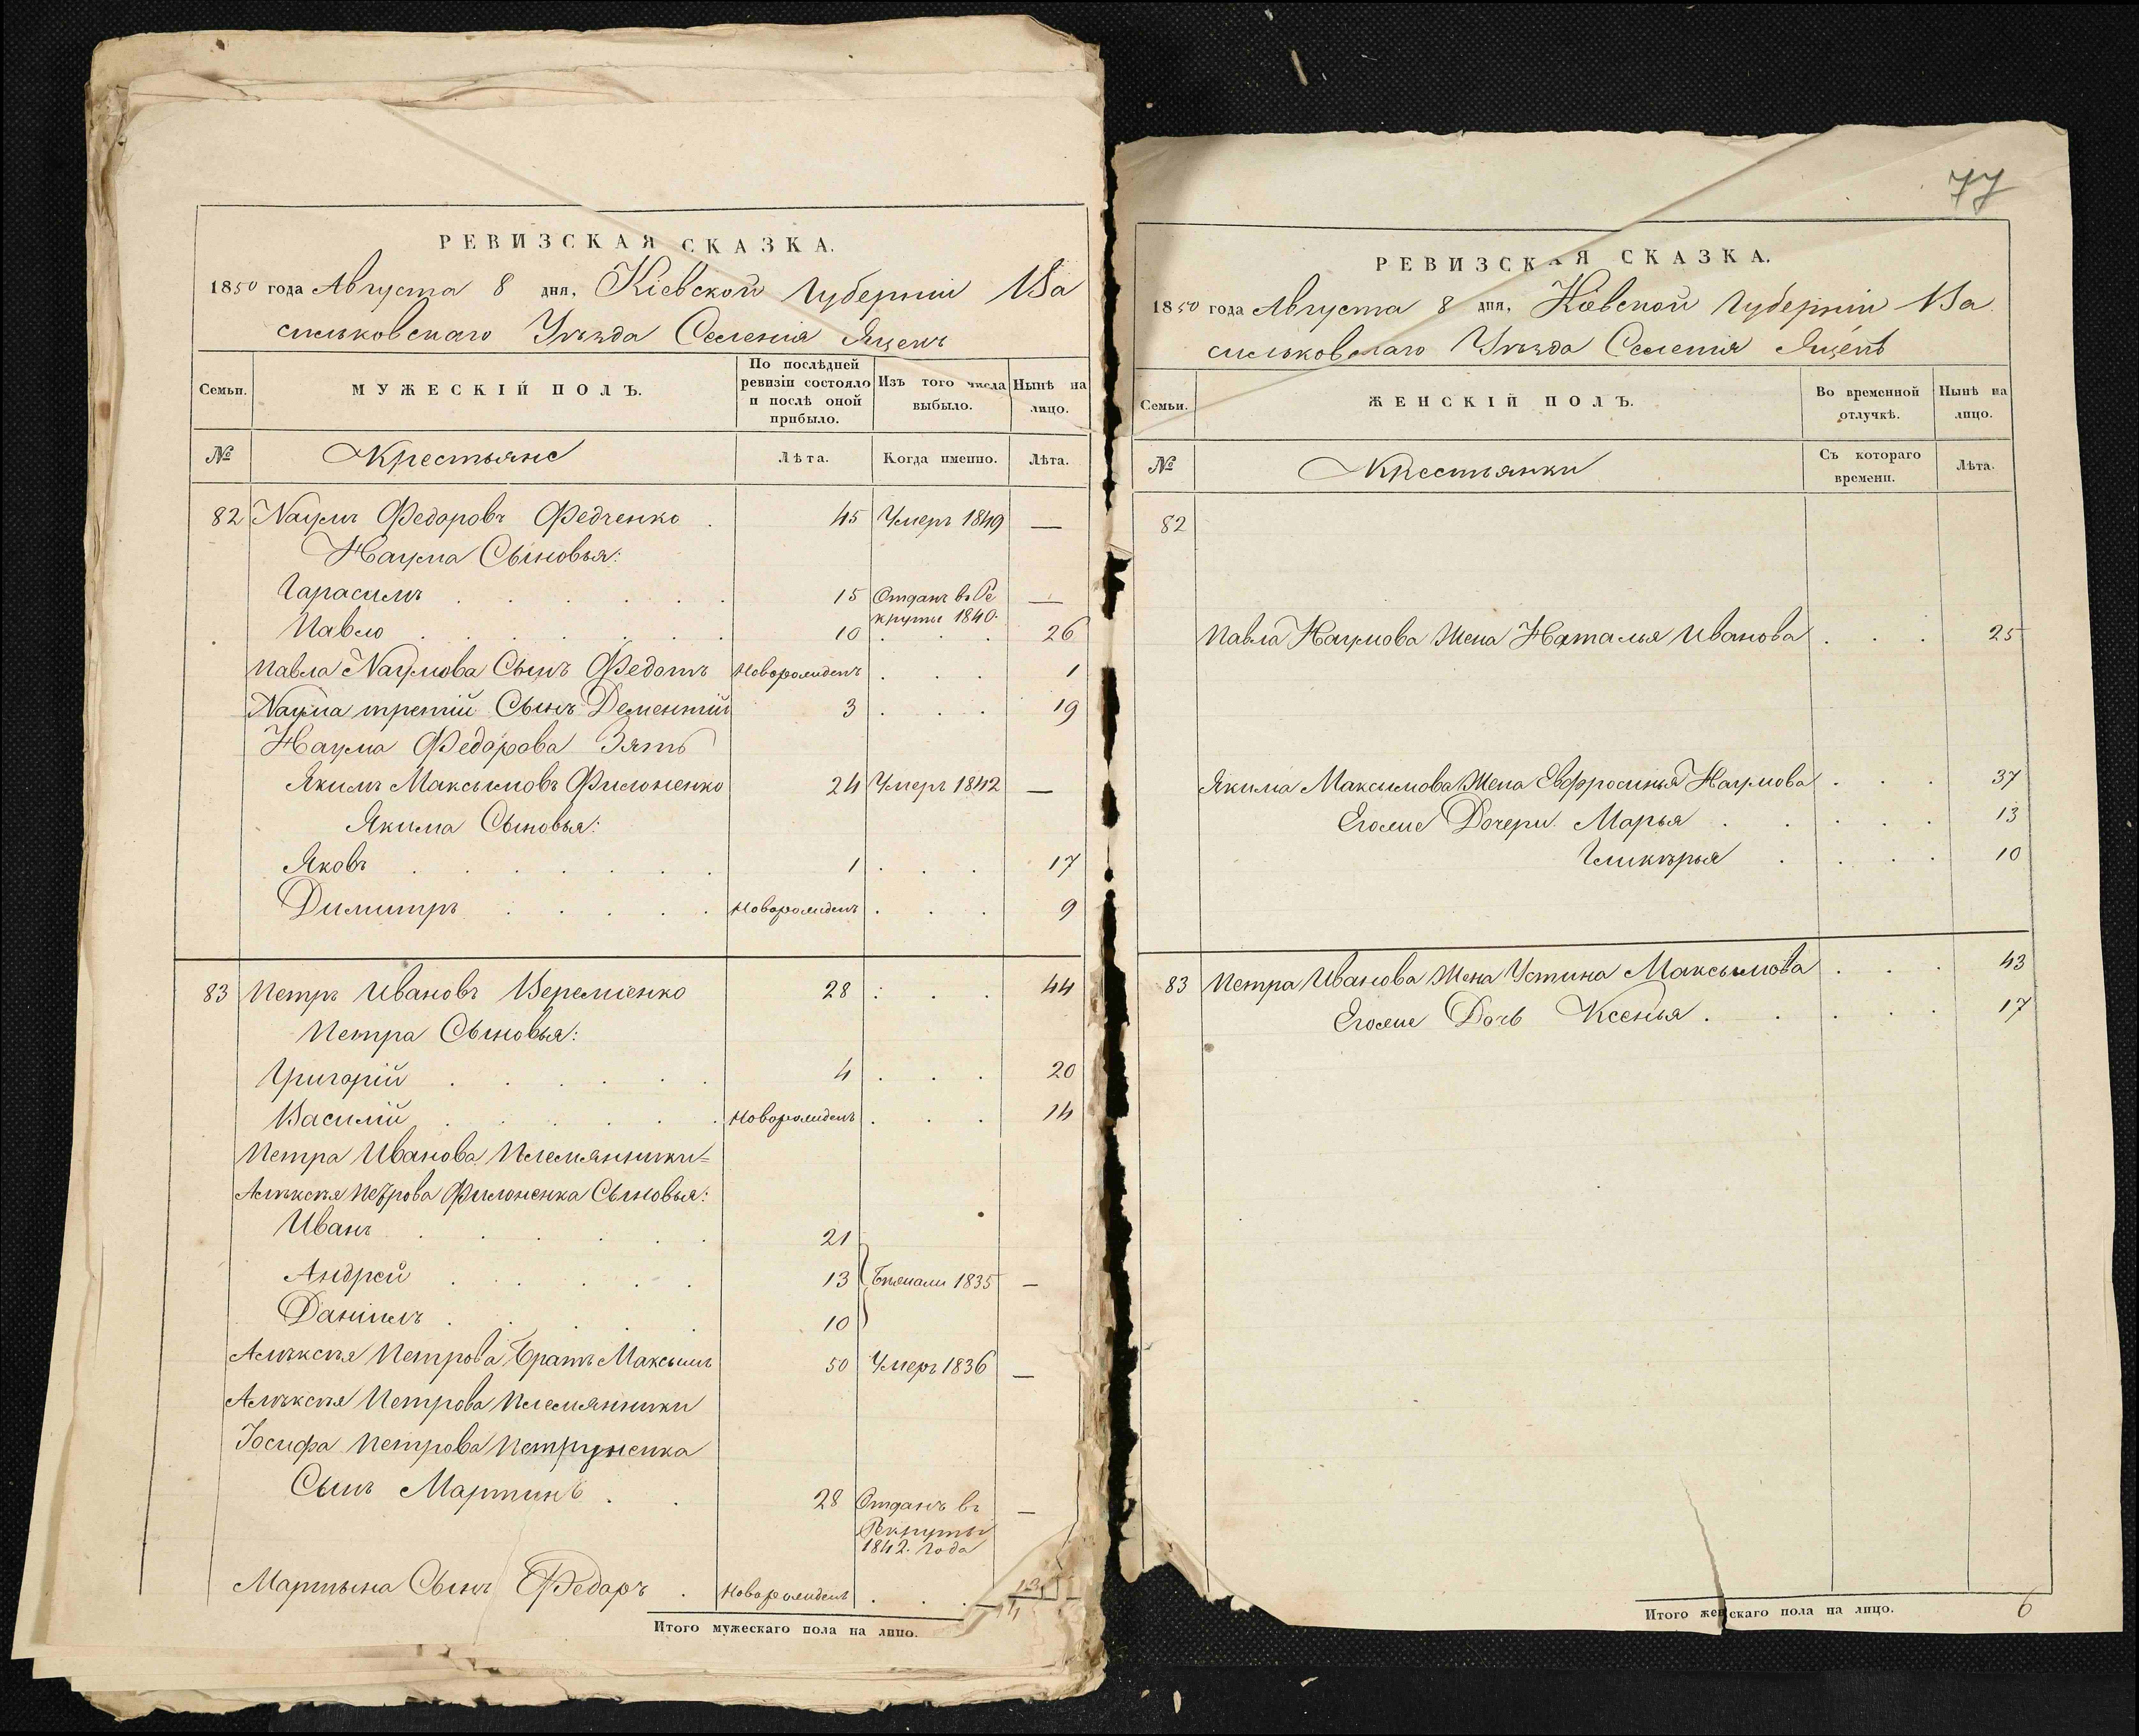 РЕВИЗСКАЯ СКАЗКА.
1850 года Августа 8 дня, Кіевской Губерніи Ва
сильковскаго Уѣзда Селенія Яцекъ
Семьи. МУЖЕСКІЙ ПОЛЪ. По послѣдней ревизіи состояло и послѣ оной прибыло. Изъ того числа выбыло. Нынѣ на лицо.
№ Крестьяне Лѣта. Когда именно. Лѣта.
82 Наумъ Федоровъ Федченко . 45 Умеръ 1849 —
Наума Сыновья:
Гарасимъ . . . . . . 15 Отданъ въ Ре
круты 1840. —
Павло . . . . . . . 10 . . . 26
Павла Наумова Сынъ Федотъ Новорожденъ . . . 1
Наума третій Сынъ Дементій 3 . . . 19
Наума Федорова Зять
Якимъ Максимовъ Филоненко 24 Умеръ 1842 —
Якима Сыновья:
Яковъ . . . . . . . 1 . . . 17
Димитръ . . . . . Новорожденъ . . . 9
83 Петръ Ивановъ Веремієнко 28 : . . 44
Петра Сыновья:
Григорій . . . . . . 4 . . . 20
Василій . . . . . . Новорожденъ . . . 14
Петра Иванова Племянники=
Алѣксѣя Петрова Филоненка Сыновья:
Иванъ . . . . . . 21
Андрей . . . . . 13 Бѣжали 1835 —
Даніилъ . . . . . 10
Алѣксѣя Петрова Братъ Максимъ 50 Умеръ 1836 —
Алѣксѣя Петрова Племянники
Іосифа Петрова Петруненка
Сынъ Мартинъ . . 28 Отданъ въ —
Рекруты
1842. года
Мартына Сынъ Федоръ . Новорожденъ . . . —
Итого мужескаго пола на лицо.
77
РЕВИЗСКАЯ СКАЗКА.
1850 года Августа 8 дня, Кіевской Губерніи Ва
сильковскаго Уѣзда Селенія Яцекъ
Семьи. ЖЕНСКІЙ ПОЛЪ. Во временной отлучкѣ. Нынѣ на лицо.
№ Крестьянки Съ котораго времени. Лѣта.
82
Павла Наумова Жена Наталья Иванова . . . 25
Якима Максимова Жена Евфросинья Наумова . . . 37
Егоже Дочери Марья . . . . . 13
Гликѣрья . . . . 10
83 Петра Иванова Жена Устина Максимова . . . 43
Егоже Дочь Ксенья . . . . . 17
Итого женскаго пола на лицо. 6